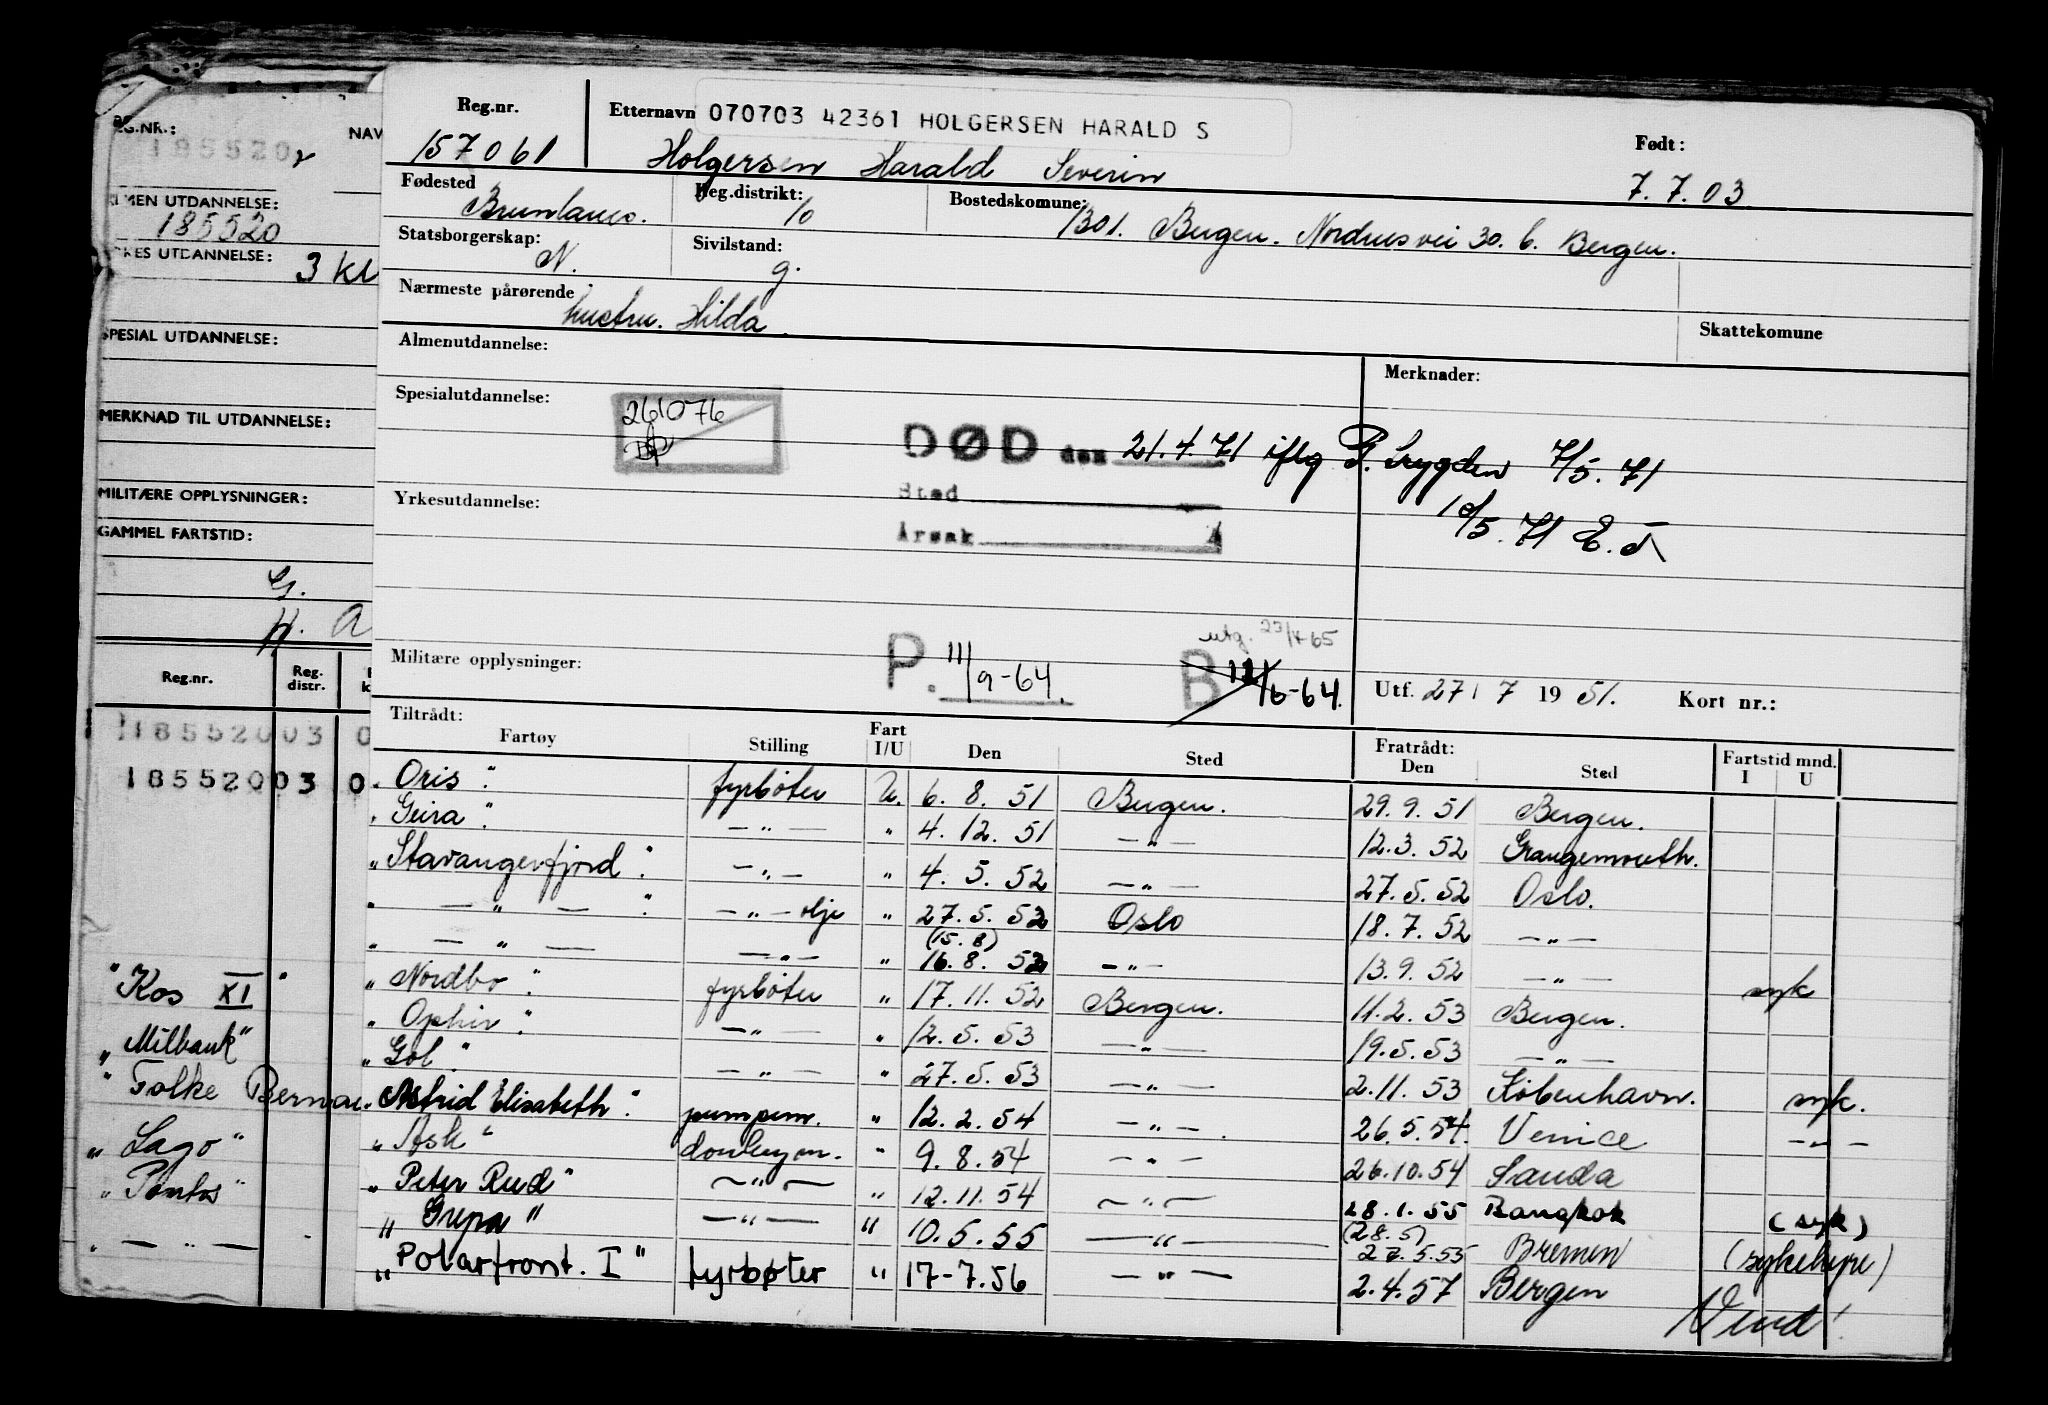 REG.NR.:
185520
NAV
ALMEN UTDANNELSE:
185520
YRKES UTDANNELSE:
3 kl
SPESIAL UTDANNELSE:
MERKNAD TIL UTDANNELSE:
MILITÆRE OPPLYSNINGER:
GAMMEL FARTSTID:
G.
H. a
Reg.nr.
Reg. distr.
18552003 0
18552003 0
"Kos XI"
"Milbank"
"Folke Berna
"Lago"
"Pontos"
" — " —
Reg.nr.
157061
Etternavn 070703 42361 HOLGERSEN HARALD S
Holgersen Harald Severin
Født:
7.7.03
Fødested
Brunlanes.
Reg.distrikt:
10
Bostedskomune:
1301. Bergen. Nordnesvei 30.b. Bergen.
Statsborgerskap:
N.
Sivilstand:
g.
Nærmeste pårørende
hustru. Hilda.
Skattekomune
Almenutdannelse:
Merknader:
Spesialutdannelse:
261076
DØD den 21.4.71 iflg P. trygden 7/5.71
Sted
10/5.71 E.T
Yrkesutdannelse:
Årsak
Militære opplysninger:
P. 11/9-64.
utg. 23/4-65
B 12/6-64.
Utf. 27/7 1951. Kort nr.:
Tiltrådt:
Fartøy Stilling Fart I/U Den Sted Fratrådt: Den Sted Fartstid mnd. I U
"Oris" fyrbøter U. 6.8.51 Bergen. 29.9.51 Bergen.
"Geira" — " — " 4.12.51 — " — 12.3.52 Grangemouth.
"Stavangerfjord" — " — " 4.5.52 — " — 27.5.52 Oslo.
" — " — " — " — olje " 27.5.52 Oslo 18.7.52 — " —
" — " — — " — " (15.8) 16.8.52 — " — 13.9.52 — " — syk
"Nordbo" fyrbøter " 17.11.52 Bergen. 11.2.53 Bergen.
"Ophir" — " — " 12.5.53 — " — 19.5.53 — " —
"Gol" — " — " 27.5.53 — " — 2.11.53 København. syk.
"Astrid Elisabeth" pumpem. " 12.2.54 — " — 26.5.54. Venice — " —
"Ask" donkeym. " 9.8.54 — " — 26.10.54 Sauda
"Peter Rud" — " — " 12.11.54 — " — 28.1.55 Bangkok (syk)
"Grepa" — " — " 10.5.55 — " — (28.5) 27.5.55 Bremen (sykehyre)
"Polarfront. I" fyrbøter " 17-7.56 — " — 2.4.57 Bergen
Vend!